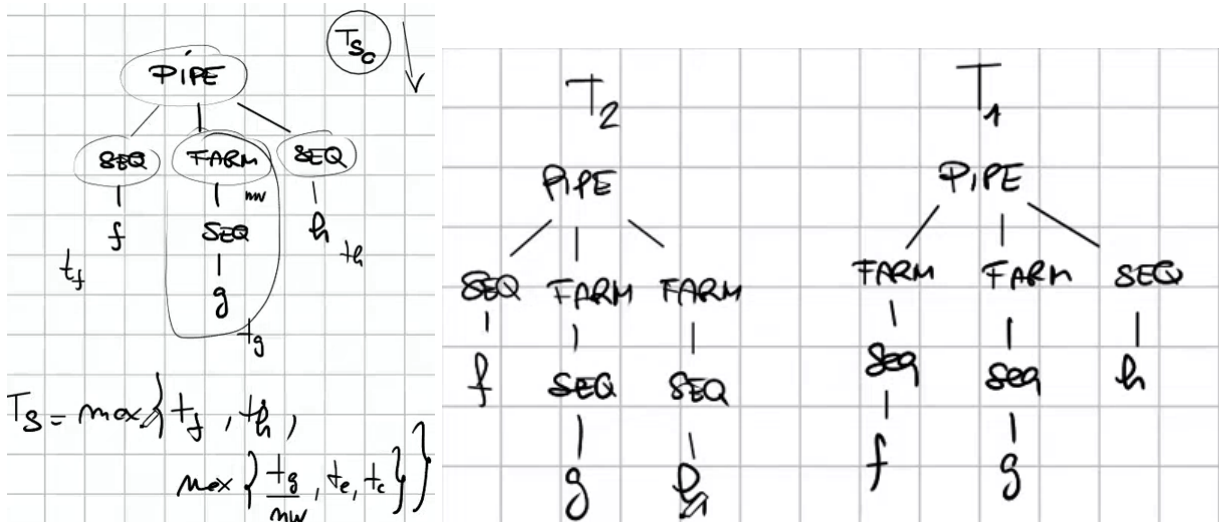 T_{S_0}
PIPE
SEQ FARM SEQ
nw
f SEQ h
t_f t_h
g
t_g
T_S = max { t_f , t_h ,
max { t_g / nw , t_e , t_c } }
T_2
PIPE
SEQ FARM FARM
f SEQ SEQ
g h
T_1
PIPE
FARM FARM SEQ
Seq Seq h
f g